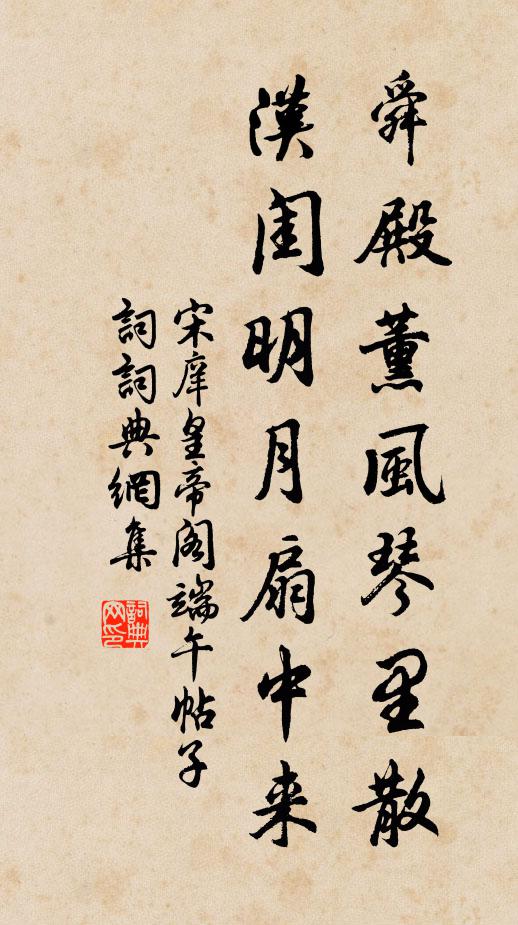 舜殿薰風琴里散
漢闺明月扇中来
宋庠皇帝阁端午帖子
詞詞典網集
詞典网印